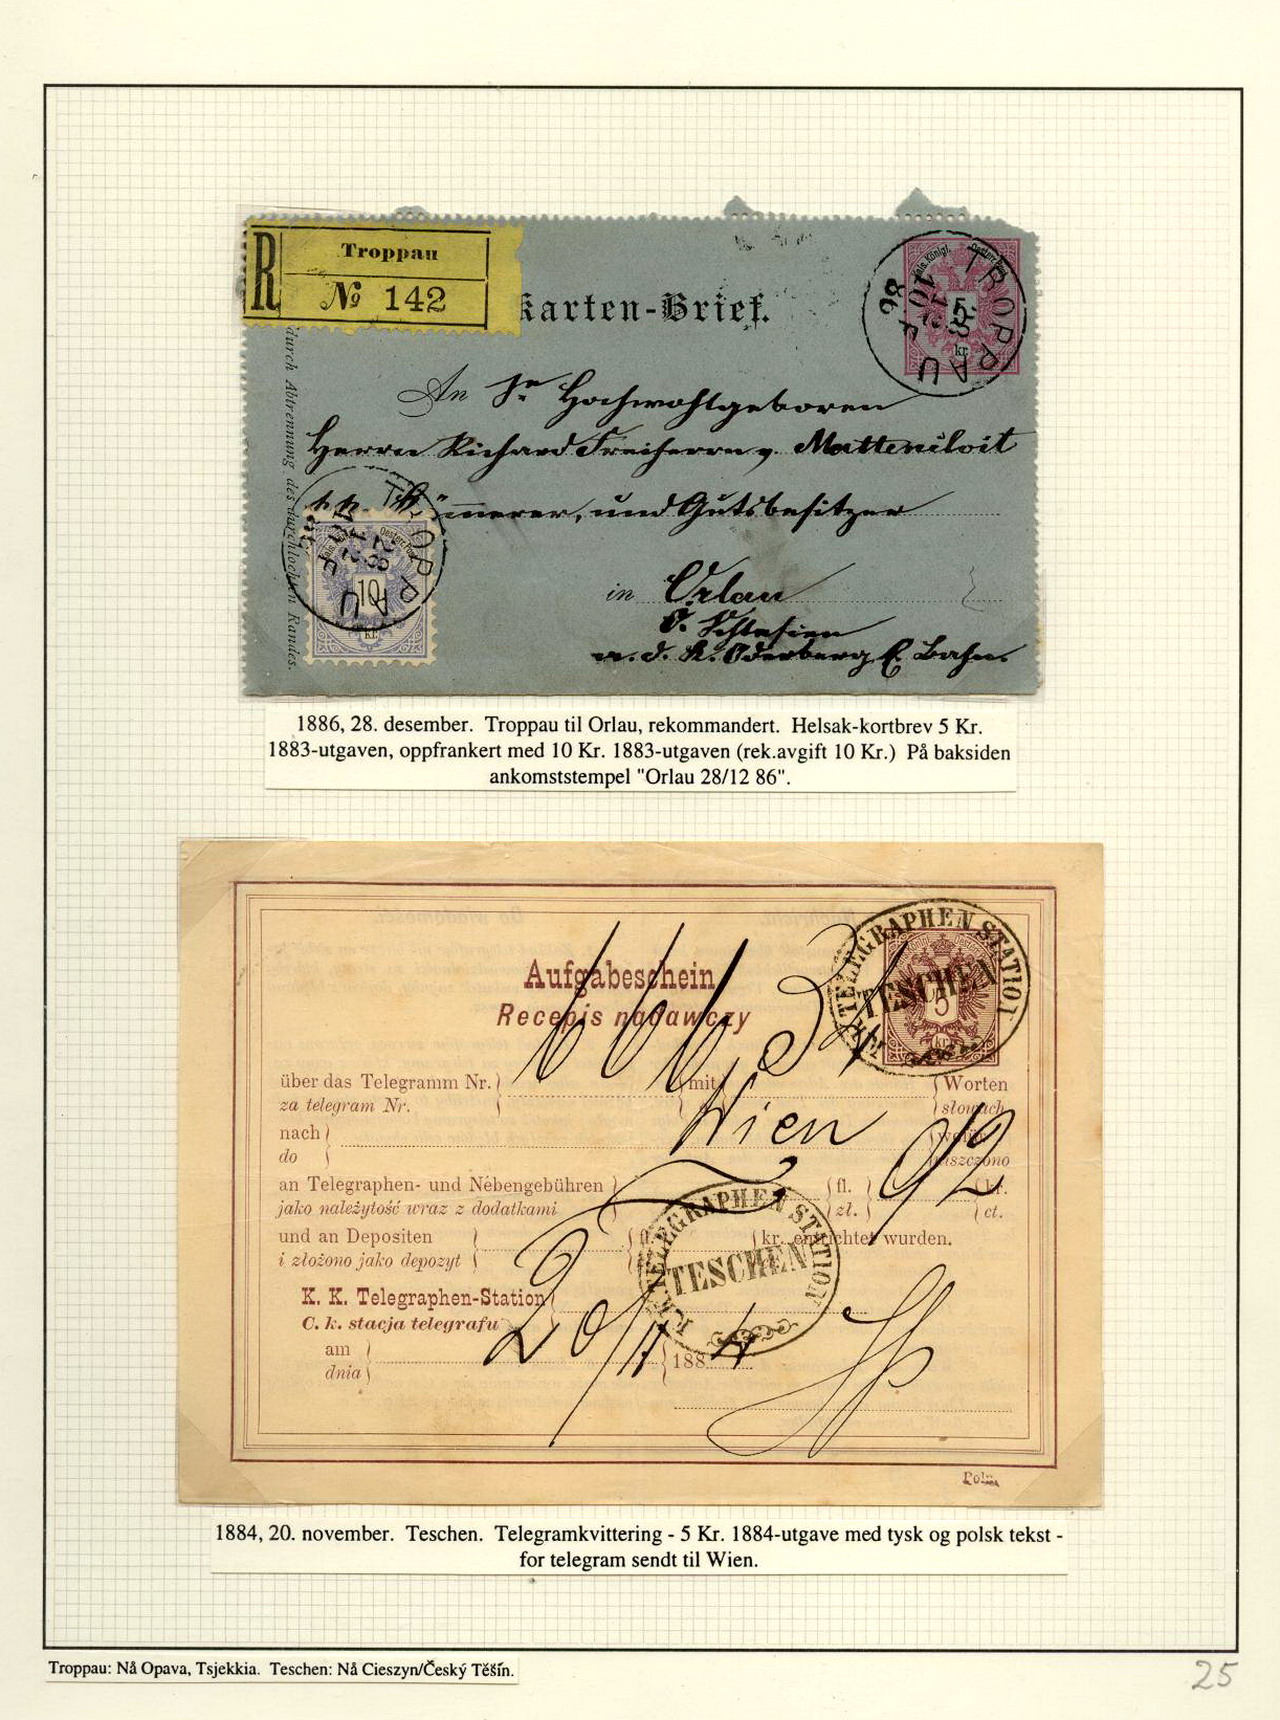 R
Troppau
№ 142
karten-Brief.
Kais. Königl. Oesterr. Post
5
kr.
TROPPAU
28 12
86
10 F
durch Abtrennung des durchlochten Randes.
An Sr Hochwohlgeboren
Herrn Richard Freiherrn v. Mattencloit
k. k. Kämmerer, und Gutsbesitzer
TROPPAU
28 12
86
10 F
10
kr.
in Orlau
Ö. Schlesien
a. d. K. Oderberg E. Bahn.
1886, 28. desember. Troppau til Orlau, rekommandert. Helsak-kortbrev 5 Kr.
1883-utgaven, oppfrankert med 10 Kr. 1883-utgaven (rek.avgift 10 Kr.) På baksiden
ankomststempel "Orlau 28/12 86".
K.K. TELEGRAPHEN STATION
TESCHEN
5
kr.
Aufgabeschein
Recepis nadawczy
über das Telegramm Nr. 666 mit Worten
za telegram Nr. słowach
nach Wien
do
an Telegraphen- und Nebengebühren fl. 92 kr.
jako należytość wraz z dodatkami zł. ct.
und an Depositen fl. kr. entrichtet wurden.
i złożono jako depozyt
K.K. TELEGRAPHEN STATION
TESCHEN
K. K. Telegraphen-Station
C. k. stacja telegrafu
am 20/11 1884
dnia
Poln.
1884, 20. november. Teschen. Telegramkvittering - 5 Kr. 1884-utgave med tysk og polsk tekst -
for telegram sendt til Wien.
Troppau: Nå Opava, Tsjekkia. Teschen: Nå Cieszyn/Český Těšín.
25